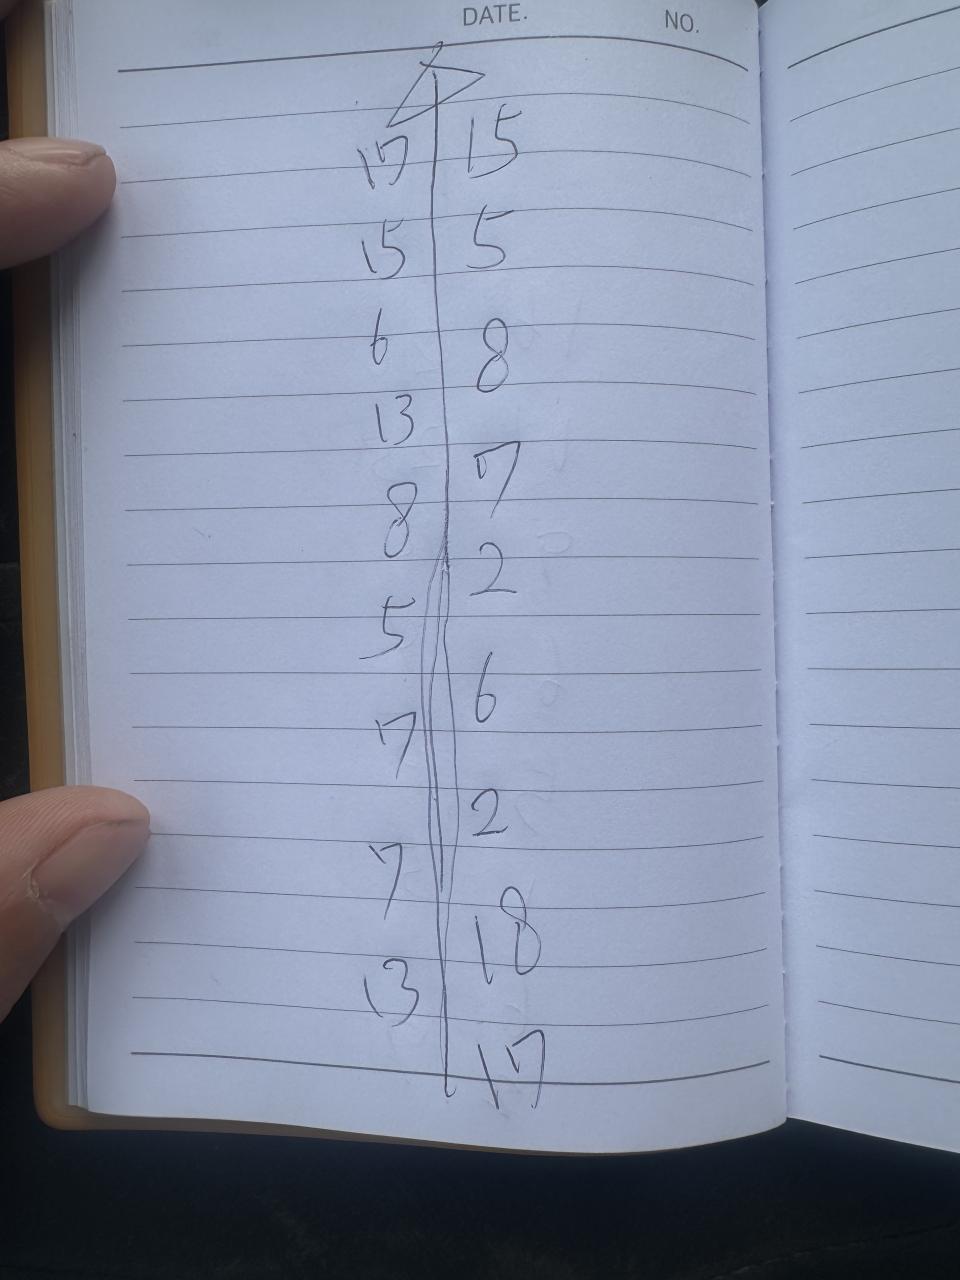 DATE. NO.
17 15
15 5
6 8
13
7
8
2
5
6
7
2
7
18
13
17